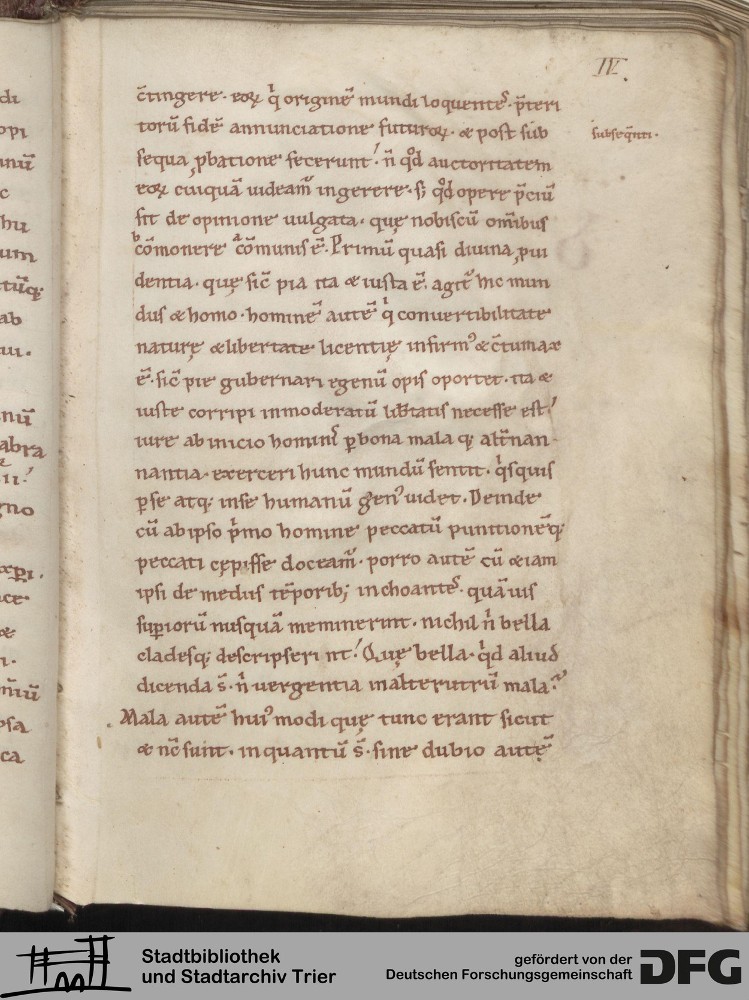 IIII.
c̄tingere. eoꝝ q̇ originē mundi loquentes. p̄teri
torū fidē annunciatione futuroꝝ. & post sub
subseq̄nti.
sequa ꝓbatione fecerunt! n̄ qd̊ auctoritatem
eoꝝ cuiquā uideam̄ ingerere. s; qd̊ opere p̄ciū
sit de opinione uulgata. quę nobiscū om̄ibus
b cōmonere a cōmunis ē. Primū quasi diuina ꝓui
dentia. quę sic̄ pia ita & iusta ē. agit᷑ hic mun
dus & homo. hominē autē q̇ conuertibilitate
naturę & libertate licentię infirm᷒ & c̄tumax
ē. sic̄ pie gubernari egenū opis oportet. ita &
iuste corripi inmoderatū lib̄tatis necesse est!
iure ab inicio hominis ꝑ bona mala q; alt̄nan
nantia. exerceri hunc mundū sentit. q̇squis
ꝑ se atq; in se humanū gen᷒ uidet. Deinde
cū ab ipso p̄mo homine peccatū punitionēq;
peccati cępisse doceam᷒. porro autē cū & iam
ipsi de mediis tēporib; inchoantes. quāuis
supioꝛū nusquā meminerint. nichil n̄ bella
cladesq; descripserint! Quę bella. q̇d aliud
dicenda s̄. n̄ uergentia in alterutrū mala?
Mala autē hui᷒modi quę tunc erant sicut
& nc̄ sunt. in quantū s̄. sine dubio autę̄
Stadtbibliothek
und Stadtarchiv Trier
gefördert von der
Deutschen Forschungsgemeinschaft
DFG